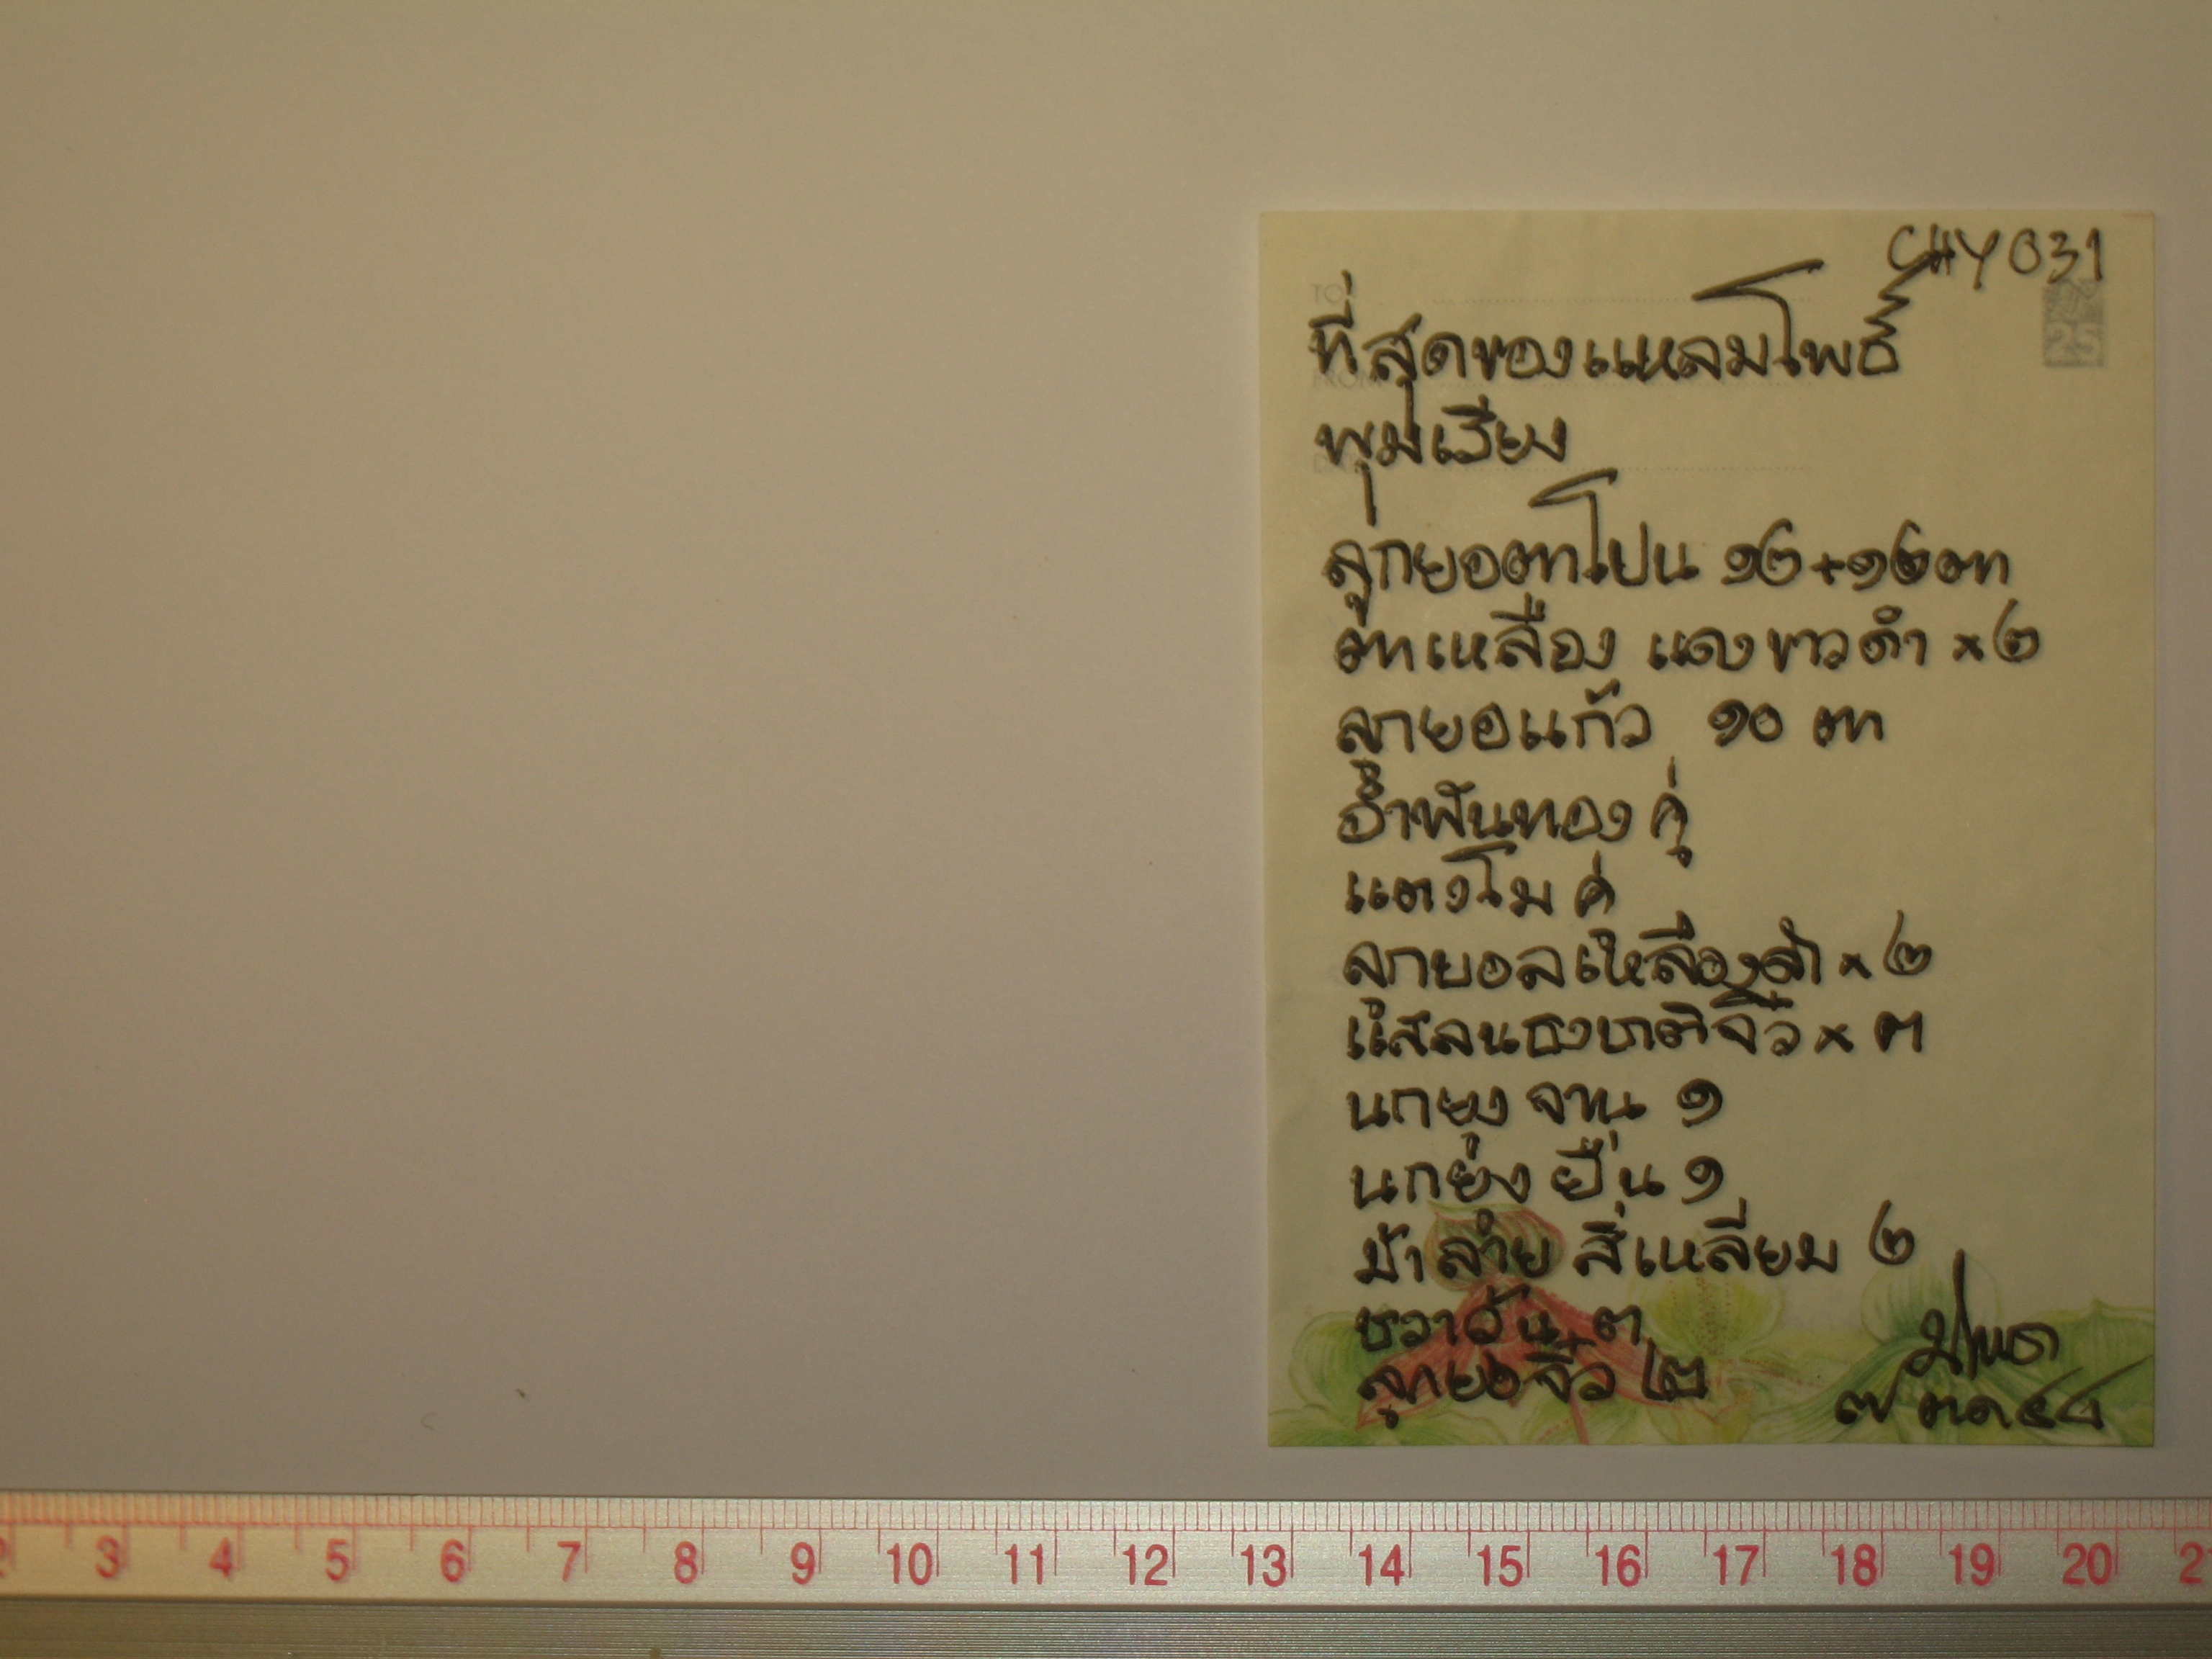 CHY031
TO
ที่สุดของแหลมโพธิ์
FROM
พุมเรียง
ลูกยอตาโปน ๑๒+๑๒ตา
ตาเหลือง แดงขาวดำ ×๒
ลูกยอแก้ว ๑๐ ตา
อำพันทอง คู่
แตงโม คู่
ลูกยอลเหลืองดำ × ๒
แสลนธงชาติจิ๋ว × ๓
นกยูง จาน ๑
นกยูง ยืน ๑
ม้าลาย สี่เหลี่ยม ๒
ชวาอัน ๓
ลูกยอจิ๋ว ๒
๗ ตค ๔๔
2 3 4 5 6 7 8 9 10 11 12 13 14 15 16 17 18 19 20 21